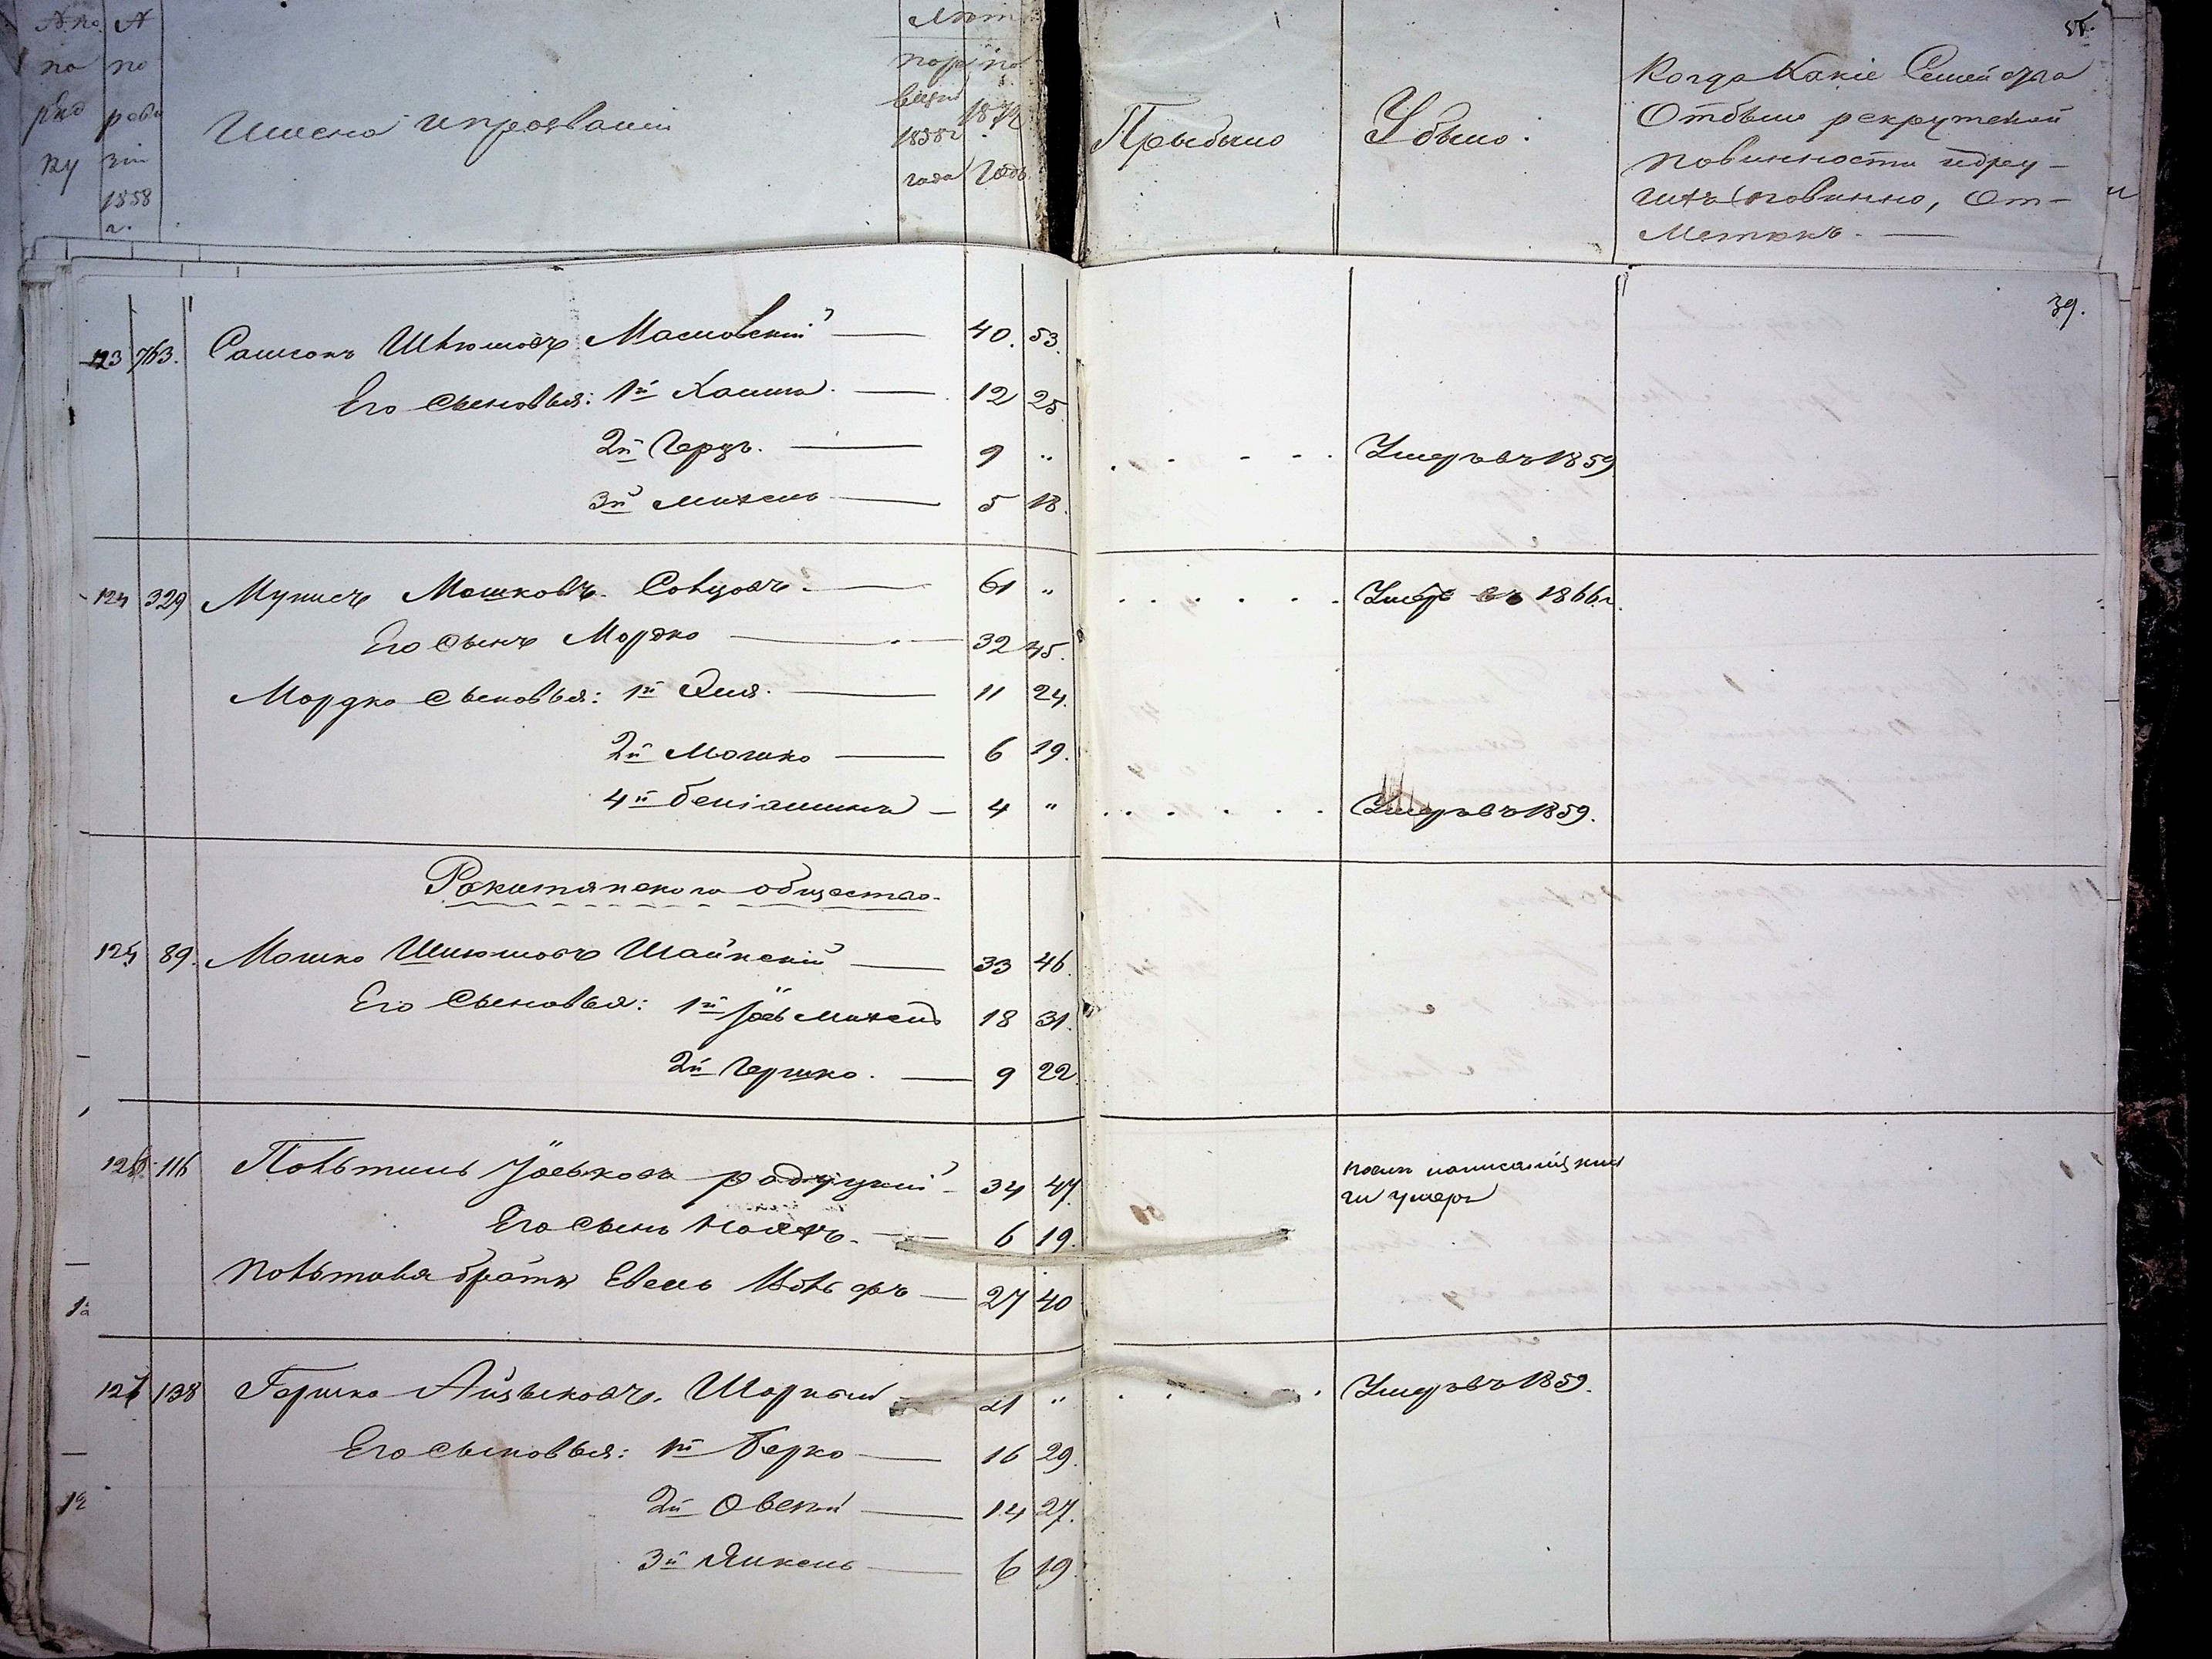 55.
№ по
порядку
№
по
ревизіи
1858
г.
Имена и прозваніи
Лѣт
по ревизіи 1858 года
по 1871 Годъ
Прыбыло
Убыло:
Когда Какіе Семейства
Отбыло рекрутской
повинности идру-
гихъ повинно, От-
метокъ. —
39.
123 763. Самсонъ Шлюмовъ Масловскій — 40. 53.
Его Сыновья: 1й Хаимъ. — 12 25.
2й Герцъ. — 9 " Умеръ въ 1859
3й Михель — 5 18.
124 329 Мунисъ Мошковъ. — 61 " Умеръ въ 1866 г.
Его Сынъ Мордко — 32 45.
Мордко Сыновья: 1й Эля. — 11 24.
2й Мошко — 6 19.
4й Беніаминъ — 4 " Умеръ въ 1859.
Рокитянского общества.
125 89. Мошко Шлюмовъ Шайнскій — 33 46.
Его Сыновья: 1й Іось Михель 18 31.
2й Гершко. — 9 22.
126 116 Іоськовъ радуцкій — 34 47. посли написаніи кни
ги умеръ
Его Сынъ — 6 19.
братъ Евель Вольфъ — 27 40
127 138 Гершко Айзыковъ. Шорный — " Умеръ въ 1859.
Его Сыновья: 1й Берко — 16 29.
2й Овсѣй — 14 27.
3й Янкель — 6 19